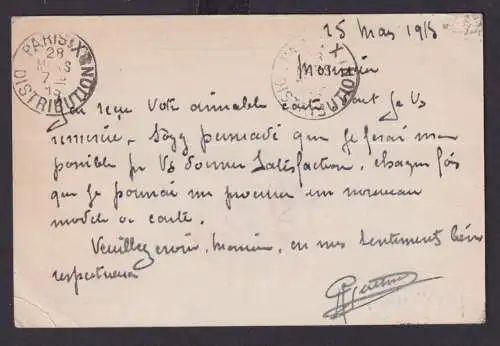 25 Mars 1915
Monsieur
PARIS XI
28
DISTRIBUTION
J'ai reçu Votre aimable carte dont Je Vs
remercie. Soyez persuadé que Je ferai mon
possible pr Vs donner Satisfaction, chaque fois
que Je pourrai me procurer un nouveau
modèle de carte.
Veuillez croire, Monsieur, en mes Sentiments bien
respectueux